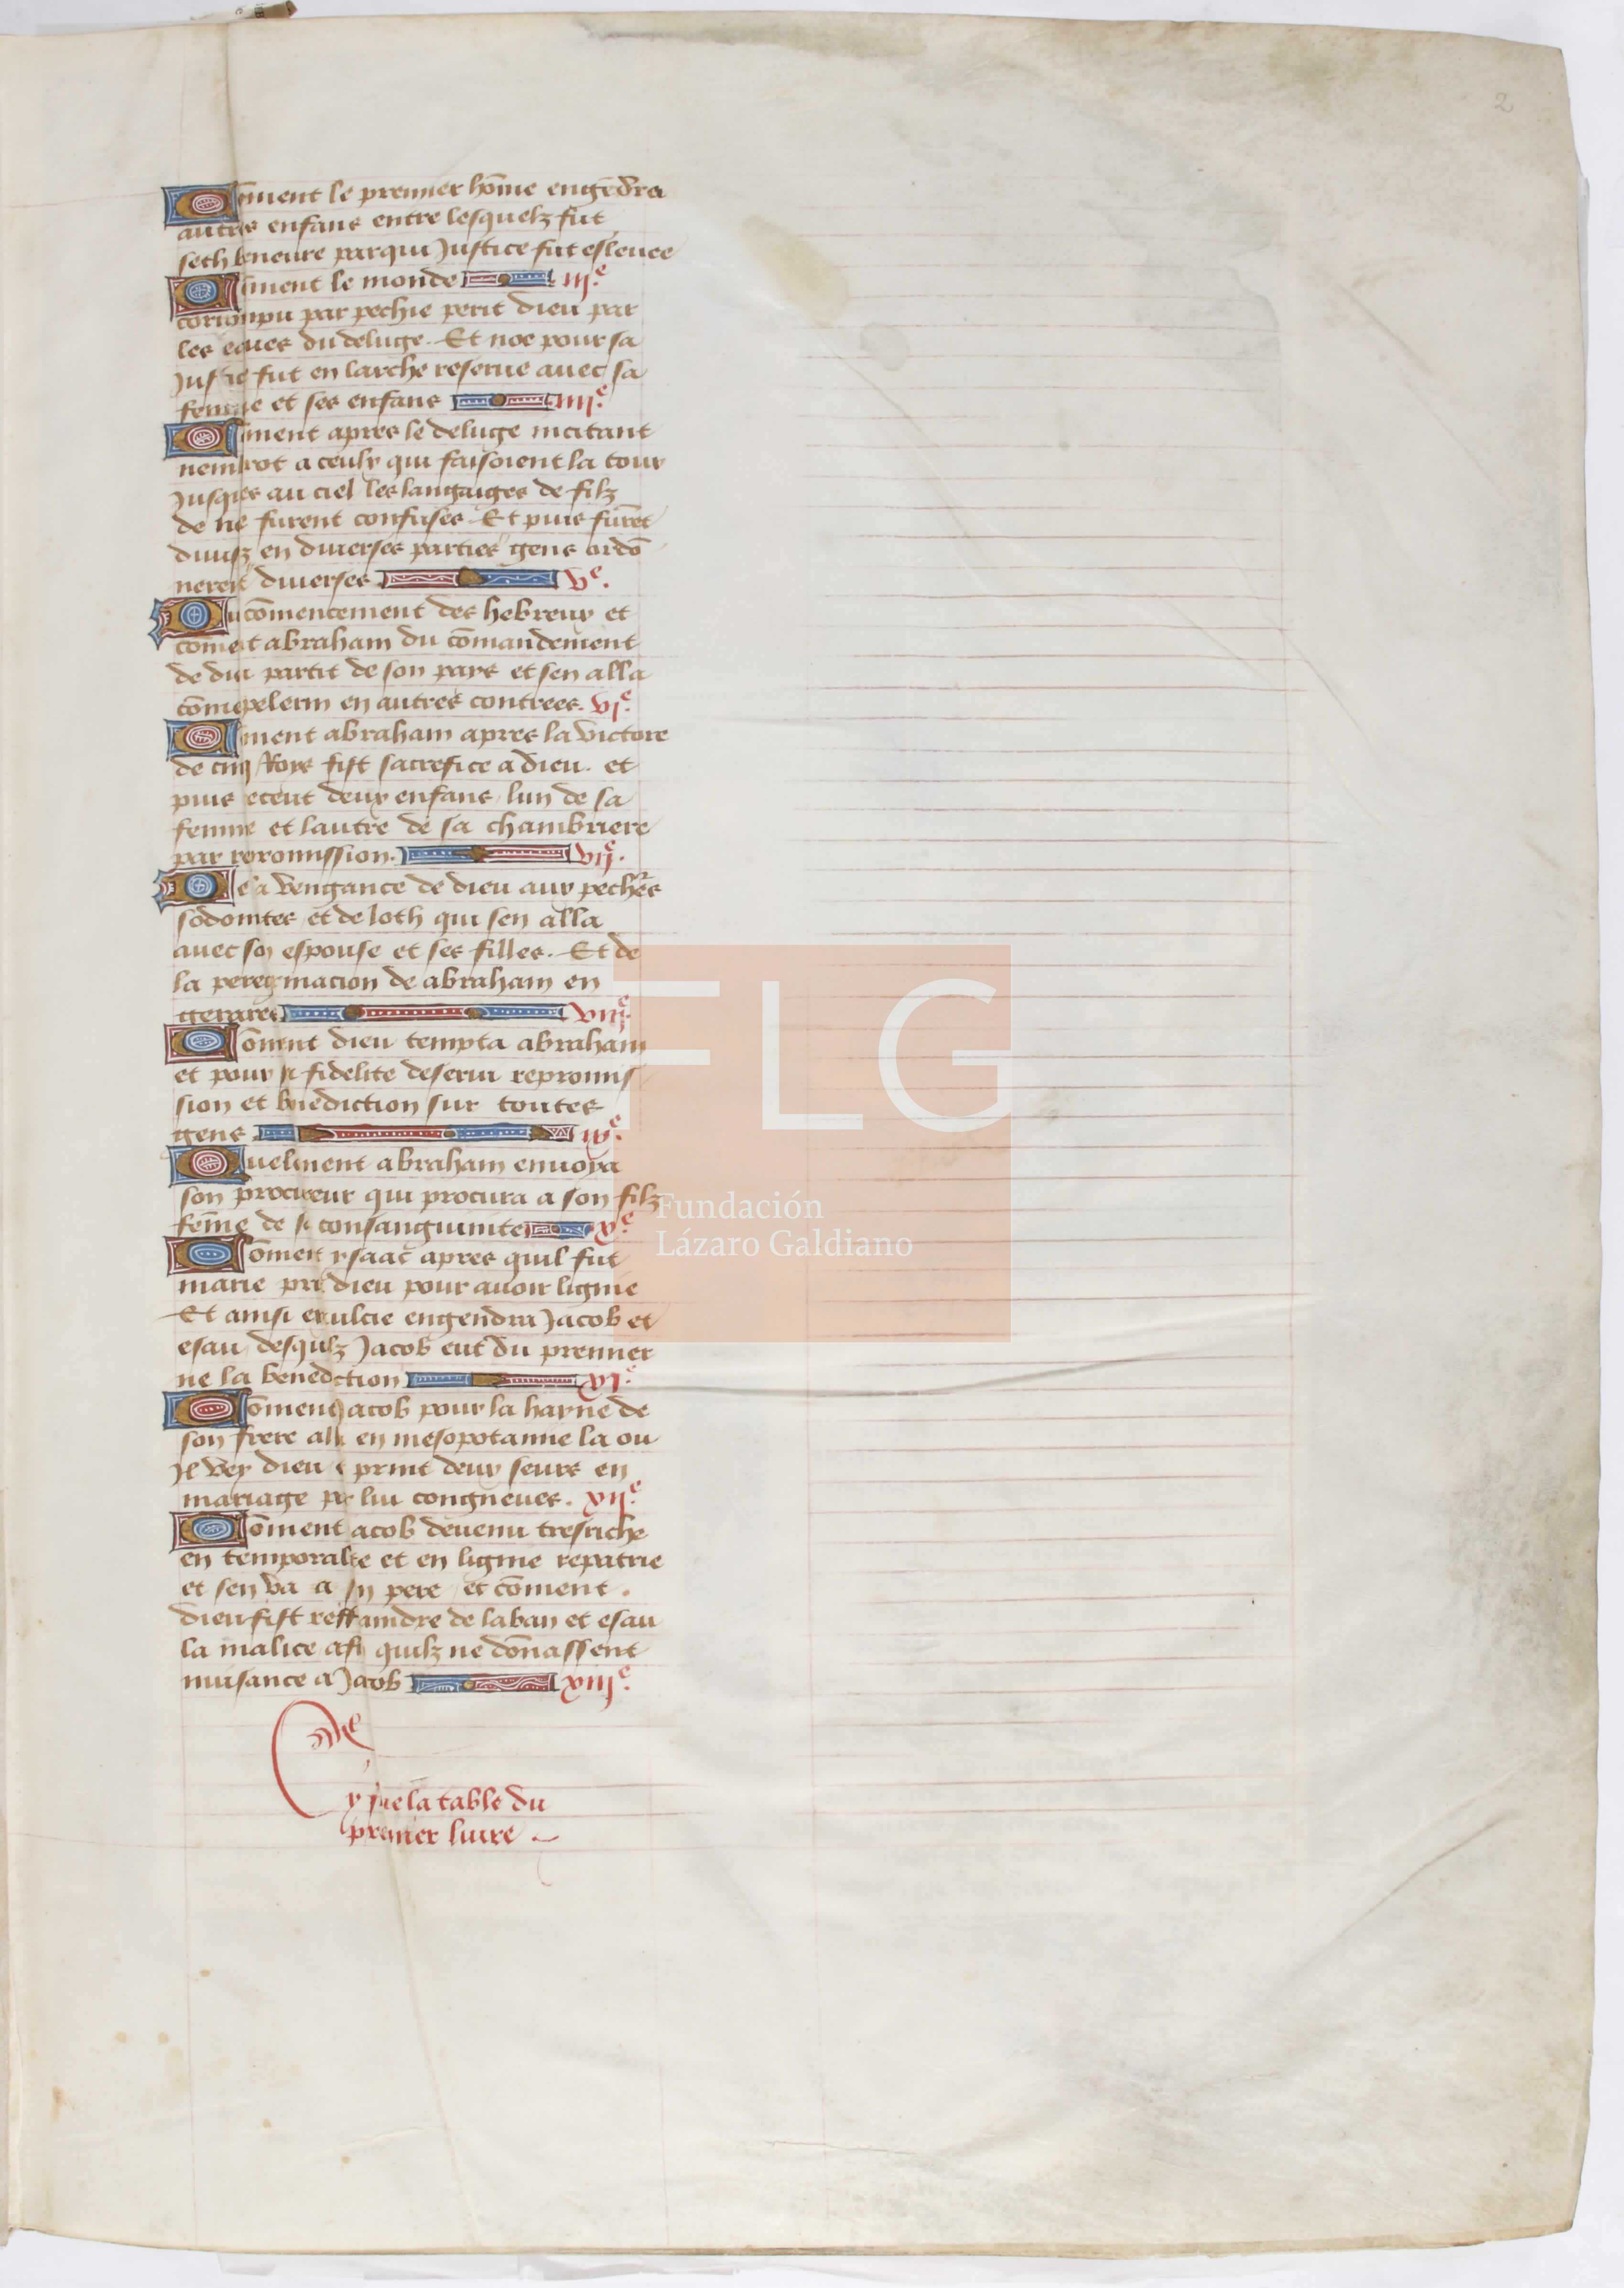 2
Cōment le premier hōme engēdra
autres enfans entre lesquelz fut
seth beneure par qui Justice fut esleuee
Cōment le monde iiie.
corrompu par pechie perit dieu par
les eaues du deluge. Et noe pour sa
Justice fut en larche reserue auec sa
femme et ses enfans iiiie.
Cōment apres le deluge incitant
nembrot a ceulx qui faisoient la tour
Jusques au ciel les langaiges de filz
de furent confuses. Et puis furēt
diuisz en diuerses parties gens ordō
nerent diuerses ve.
Du cōmencement des hebreux et
cōment abraham du cōmandement
de dieu partit de son pays et sen alla
cōme pelerin en autres contrees. vie.
Cōment abraham apres la victore
de cinq Roys fist sacrefice a dieu. et
puis receut deux enfans lun de sa
femme et lautre de sa chambriere
par repromission. viie.
De la vengance de dieu aux pechers
sodomites et de loth qui sen alla
auec son espouse et ses filles. Et de
la peregrinacion de abraham en
gerares viiie.
Cōment dieu tempta abraham
et pour sa fidelite deserui repromis
sion et benediction sur toutes
gens ixe.
Quelment abraham enuoya
son procureur qui procura a son filz
fēme de sa consanguinite xe.
Cōment ysaac apres quil fut
marie pria dieu pour auoir lignie
Et ainsi exulcie engendra Jacob et
esau desqulz Jacob eut du premier
ne la benediction xie.
Cōment Jacob pour la hayne de
son frere alla en mesopotamie la ou
Jl vey dieu et print deux seurs en
mariage par lui congneues. xiie.
Cōment Jacob deuenu tresriche
en temporalite et en lignie repatrie
et sen va a son pere et cōment.
dieu fist reffraindre de laban et esau
la malice afin quilz ne dōnassent
nuisance a Jacob xiiie.
Cy fine la table du
premier liure.
FLG
Fundación
Lázaro Galdiano